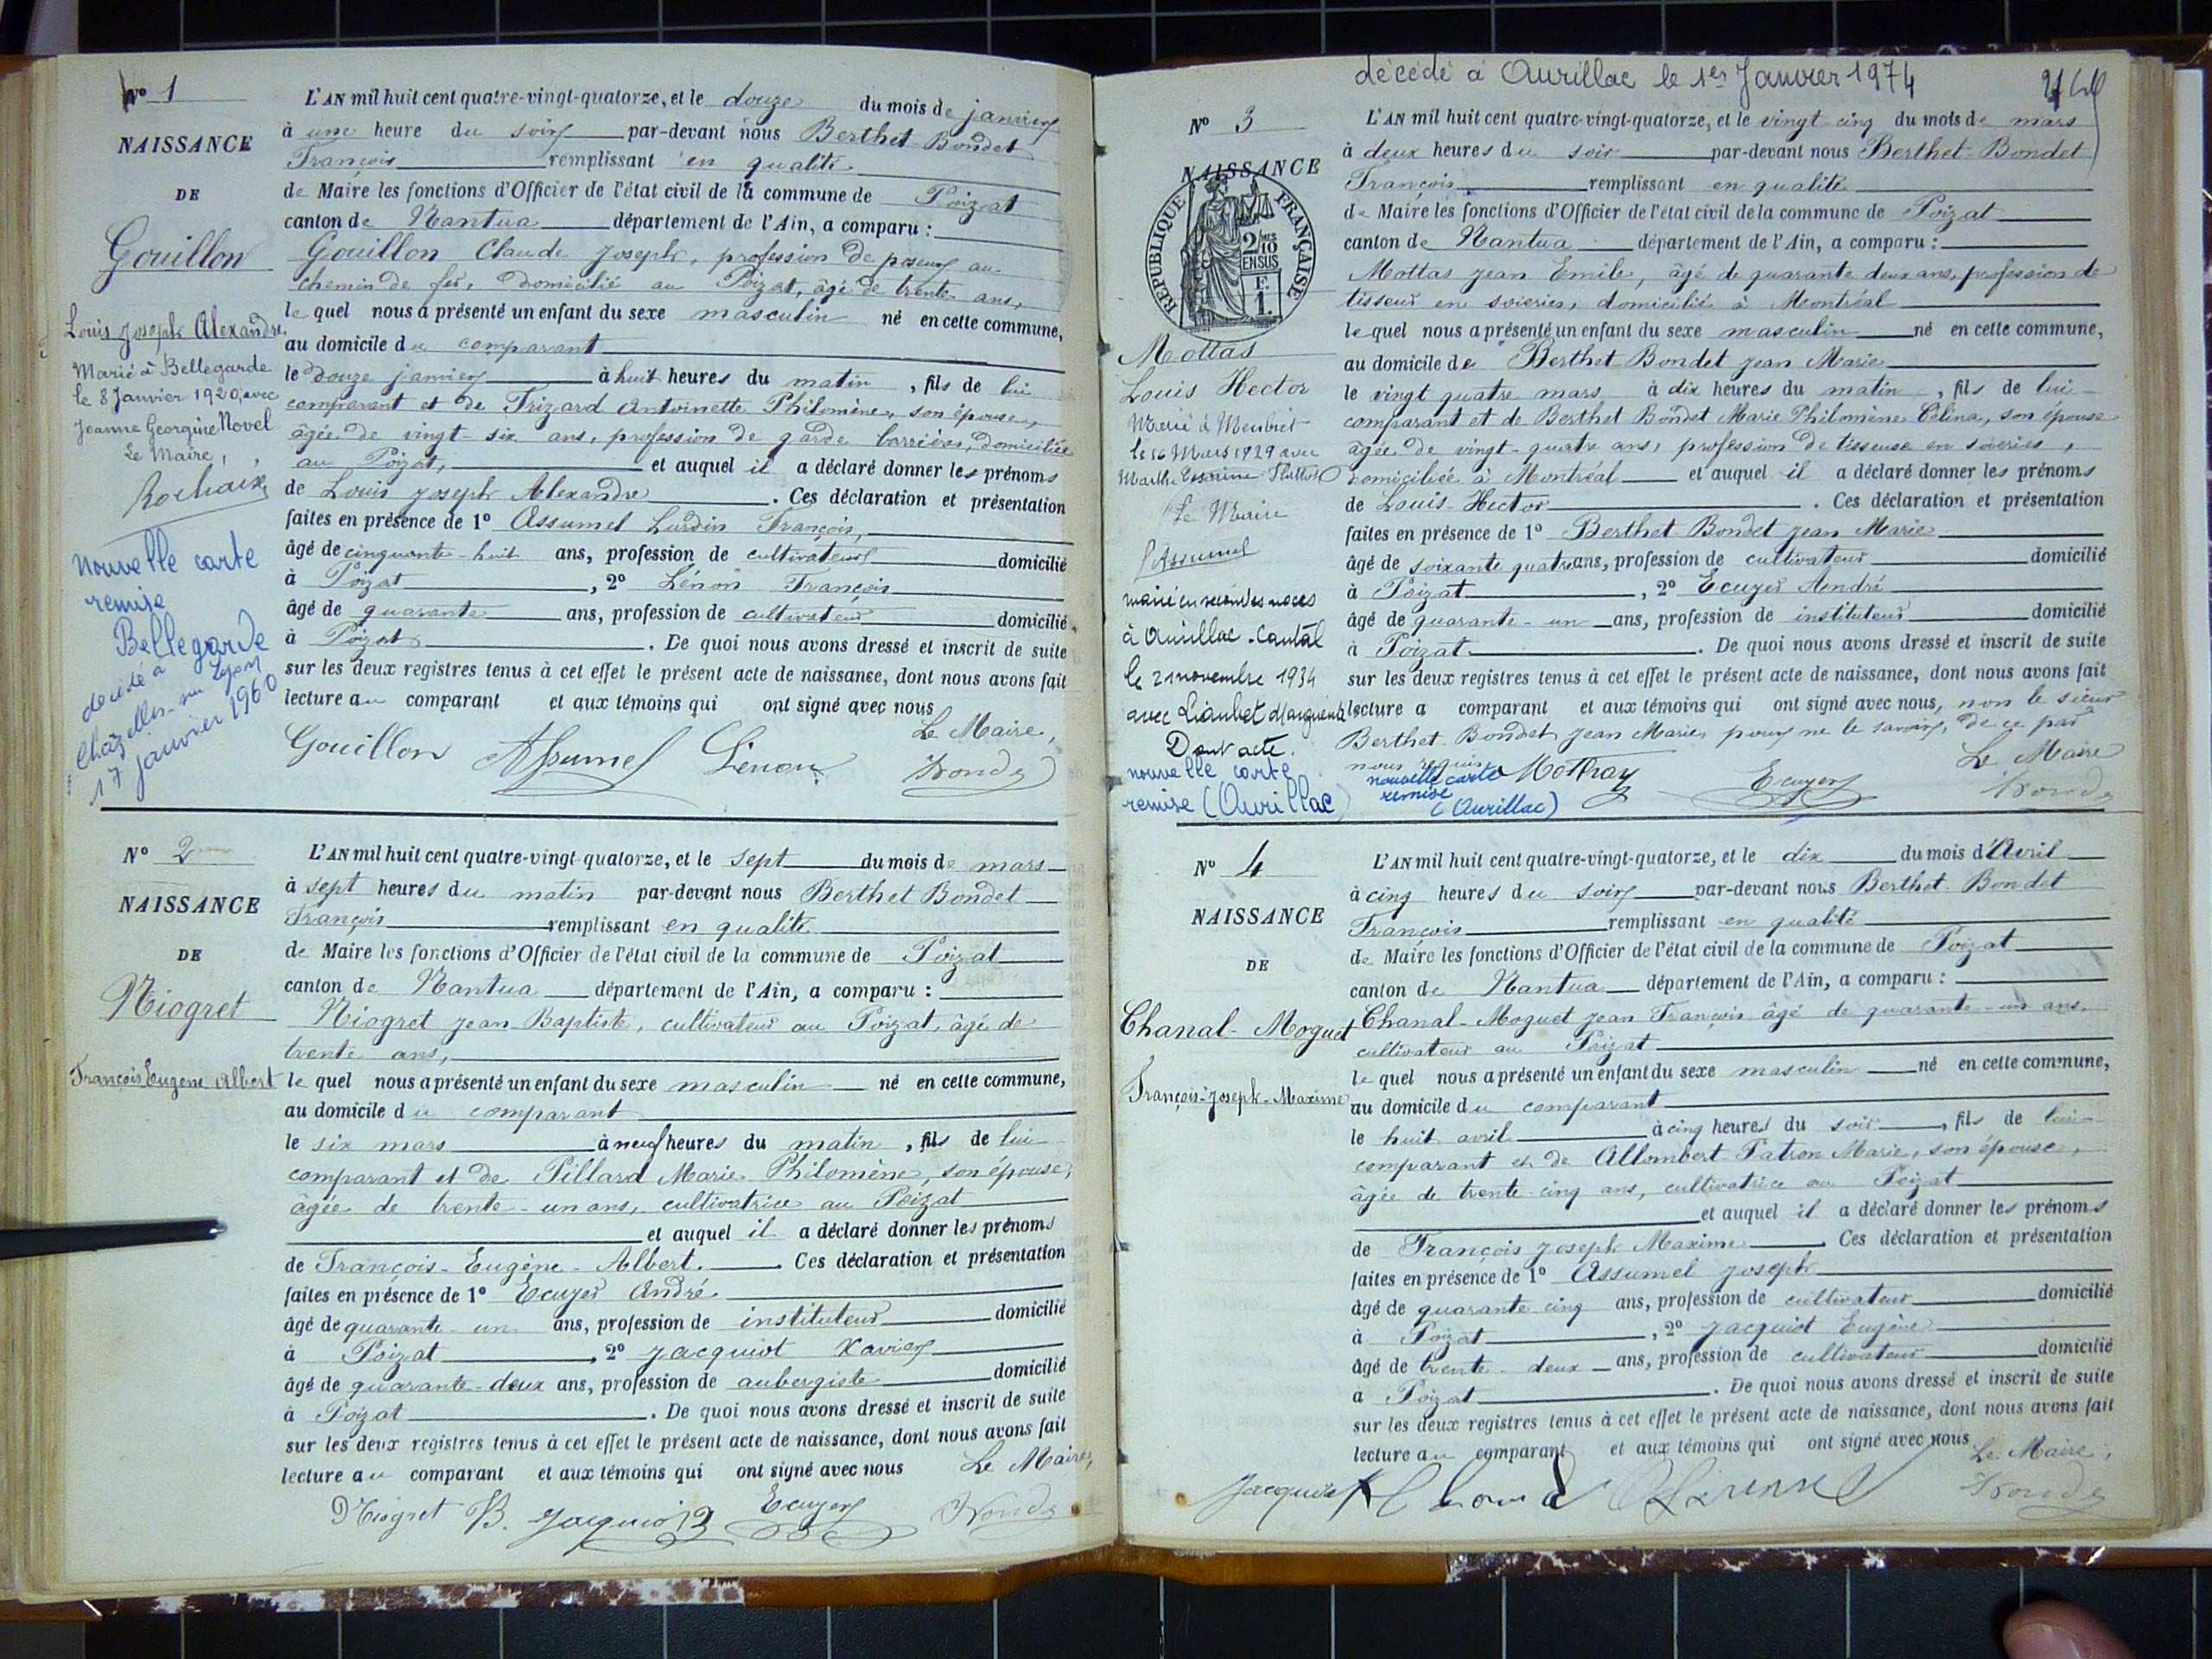 Nº 1
NAISSANCE
DE
Gouillon
Louis Joseph Alexandre
Marié à Bellegarde
le 8 Janvier 1920, avec
Jeanne Georgine Novel
Le Maire,
Rochaix
Nouvelle carte
remise
Bellegarde
décédé à
Chazelles-sur Lyon
17 janvier 1960
L'AN mil huit cent quatre-vingt-quatorze, et le douze du mois de janvier
à une heure du soir par-devant nous Berthet-Bondet
François remplissant en qualité
de Maire les fonctions d'Officier de l'état civil de la commune de Poizat
canton de Nantua département de l'Ain, a comparu :
Gouillon Claude Joseph, profession de poseur au
chemin de fer, domicilié au Poizat, âgé de trente ans,
le quel nous a présenté un enfant du sexe masculin né en cette commune,
au domicile du comparant
le douze janvier à huit heures du matin, fils de lui
comparant et de Frizard Antoinette Philomène, son épouse,
âgée de vingt-six ans, profession de garde barrières, domiciliée
au Poizat, et auquel il a déclaré donner les prénoms
de Louis Joseph Alexandre. Ces déclaration et présentation
faites en présence de 1º Assumel Lurdin François,
âgé de cinquante-huit ans, profession de cultivateur domicilié
à Poizat, 2º Lénon François
âgé de quarante ans, profession de cultivateur domicilié
à Poizat. De quoi nous avons dressé et inscrit de suite
sur les deux registres tenus à cet effet le présent acte de naissance, dont nous avons fait
lecture au comparant et aux témoins qui ont signé avec nous
Le Maire,
Gouillon Assumel Lénon Bondet
Nº 2
NAISSANCE
DE
Niogret
François Eugène Albert
L'AN mil huit cent quatre-vingt-quatorze, et le sept du mois de mars
à sept heures du matin par-devant nous Berthet Bondet
François remplissant en qualité
de Maire les fonctions d'Officier de l'état civil de la commune de Poizat
canton de Nantua département de l'Ain, a comparu :
Niogret Jean Baptiste, cultivateur au Poizat, âgé de
trente ans,
le quel nous a présenté un enfant du sexe masculin né en cette commune,
au domicile du comparant
le six mars à neuf heures du matin, fils de lui
comparant et de Pillard Marie Philomène, son épouse,
âgée de trente-un ans, cultivatrice au Poizat
et auquel il a déclaré donner les prénoms
de François-Eugène-Albert. Ces déclaration et présentation
faites en présence de 1º Ecuyer André
âgé de quarante-un ans, profession de instituteur domicilié
à Poizat, 2º Jacquiot Xavier
âgé de quarante-deux ans, profession de aubergiste domicilié
à Poizat. De quoi nous avons dressé et inscrit de suite
sur les deux registres tenus à cet effet le présent acte de naissance, dont nous avons fait
lecture au comparant et aux témoins qui ont signé avec nous Le Maire,
Niogret JB. Jacquiot Ecuyer Bondet
décédé à Aurillac le 1er Janvier 1974
Nº 3
NAISSANCE
REPUBLIQUE FRANÇAISE
2/10 EN SUS
F. 1.
Mottas
Louis Hector
Marié à
le 16 Mars 1929 avec
Le Maire
Assumel
marié en secondes noces
à Aurillac-Cantal
le 21 novembre 1934
avec
Dont acte.
nouvelle carte
remise (Aurillac)
L'AN mil huit cent quatre-vingt-quatorze, et le vingt cinq du mois de mars
à deux heures du soir par-devant nous Berthet-Bondet
François remplissant en qualité
de Maire les fonctions d'Officier de l'état civil de la commune de Poizat
canton de Nantua département de l'Ain, a comparu :
Mottas Jean Emile, âgé de quarante deux ans, profession de
tisseur en soieries, domicilié à Montréal
le quel nous a présenté un enfant du sexe masculin né en cette commune,
au domicile de Berthet-Bondet Jean Marie
le vingt quatre mars à dix heures du matin, fils de lui
comparant et de Berthet Bondet Marie Philomène Célina, son épouse
âgée de vingt-quatre ans, profession de tisseuse en soieries,
domiciliée à Montréal et auquel il a déclaré donner les prénoms
de Louis-Hector. Ces déclaration et présentation
faites en présence de 1º Berthet-Bondet Jean Marie
âgé de soixante quatre ans, profession de cultivateur domicilié
à Poizat, 2º Ecuyer André
âgé de quarante-un ans, profession de instituteur domicilié
à Poizat. De quoi nous avons dressé et inscrit de suite
sur les deux registres tenus à cet effet le présent acte de naissance, dont nous avons fait
lecture a comparant et aux témoins qui ont signé avec nous, non le sieur
Berthet-Bondet Jean Marie, pour ne le savoir, de ce par
nous requis
Le Maire
nouvelle carte
remise
(Aurillac)
Ecuyer Bondet
Nº 4
NAISSANCE
DE
Chanal-Moguet
François-Joseph-Maxime
L'AN mil huit cent quatre-vingt-quatorze, et le dix du mois d'Avril
à cinq heures du soir par-devant nous Berthet-Bondet
François remplissant en qualité
de Maire les fonctions d'Officier de l'état civil de la commune de Poizat
canton de Nantua département de l'Ain, a comparu :
Chanal-Moguet Jean François âgé de quarante-un ans
cultivateur au Poizat
le quel nous a présenté un enfant du sexe masculin né en cette commune,
au domicile du comparant
le huit avril à cinq heures du soir, fils de lui
comparant et de Allombert-Patron Marie, son épouse,
âgée de trente-cinq ans, cultivatrice au Poizat
et auquel il a déclaré donner les prénoms
de François Joseph Maxime. Ces déclaration et présentation
faites en présence de 1º Assumel Joseph
âgé de quarante cinq ans, profession de cultivateur domicilié
à Poizat, 2º Jacquiot Eugène
âgé de trente-deux ans, profession de cultivateur domicilié
à Poizat. De quoi nous avons dressé et inscrit de suite
sur les deux registres tenus à cet effet le présent acte de naissance, dont nous avons fait
lecture au comparant et aux témoins qui ont signé avec nous
Le Maire,
Jacquiot Chanal Assumel Bondet